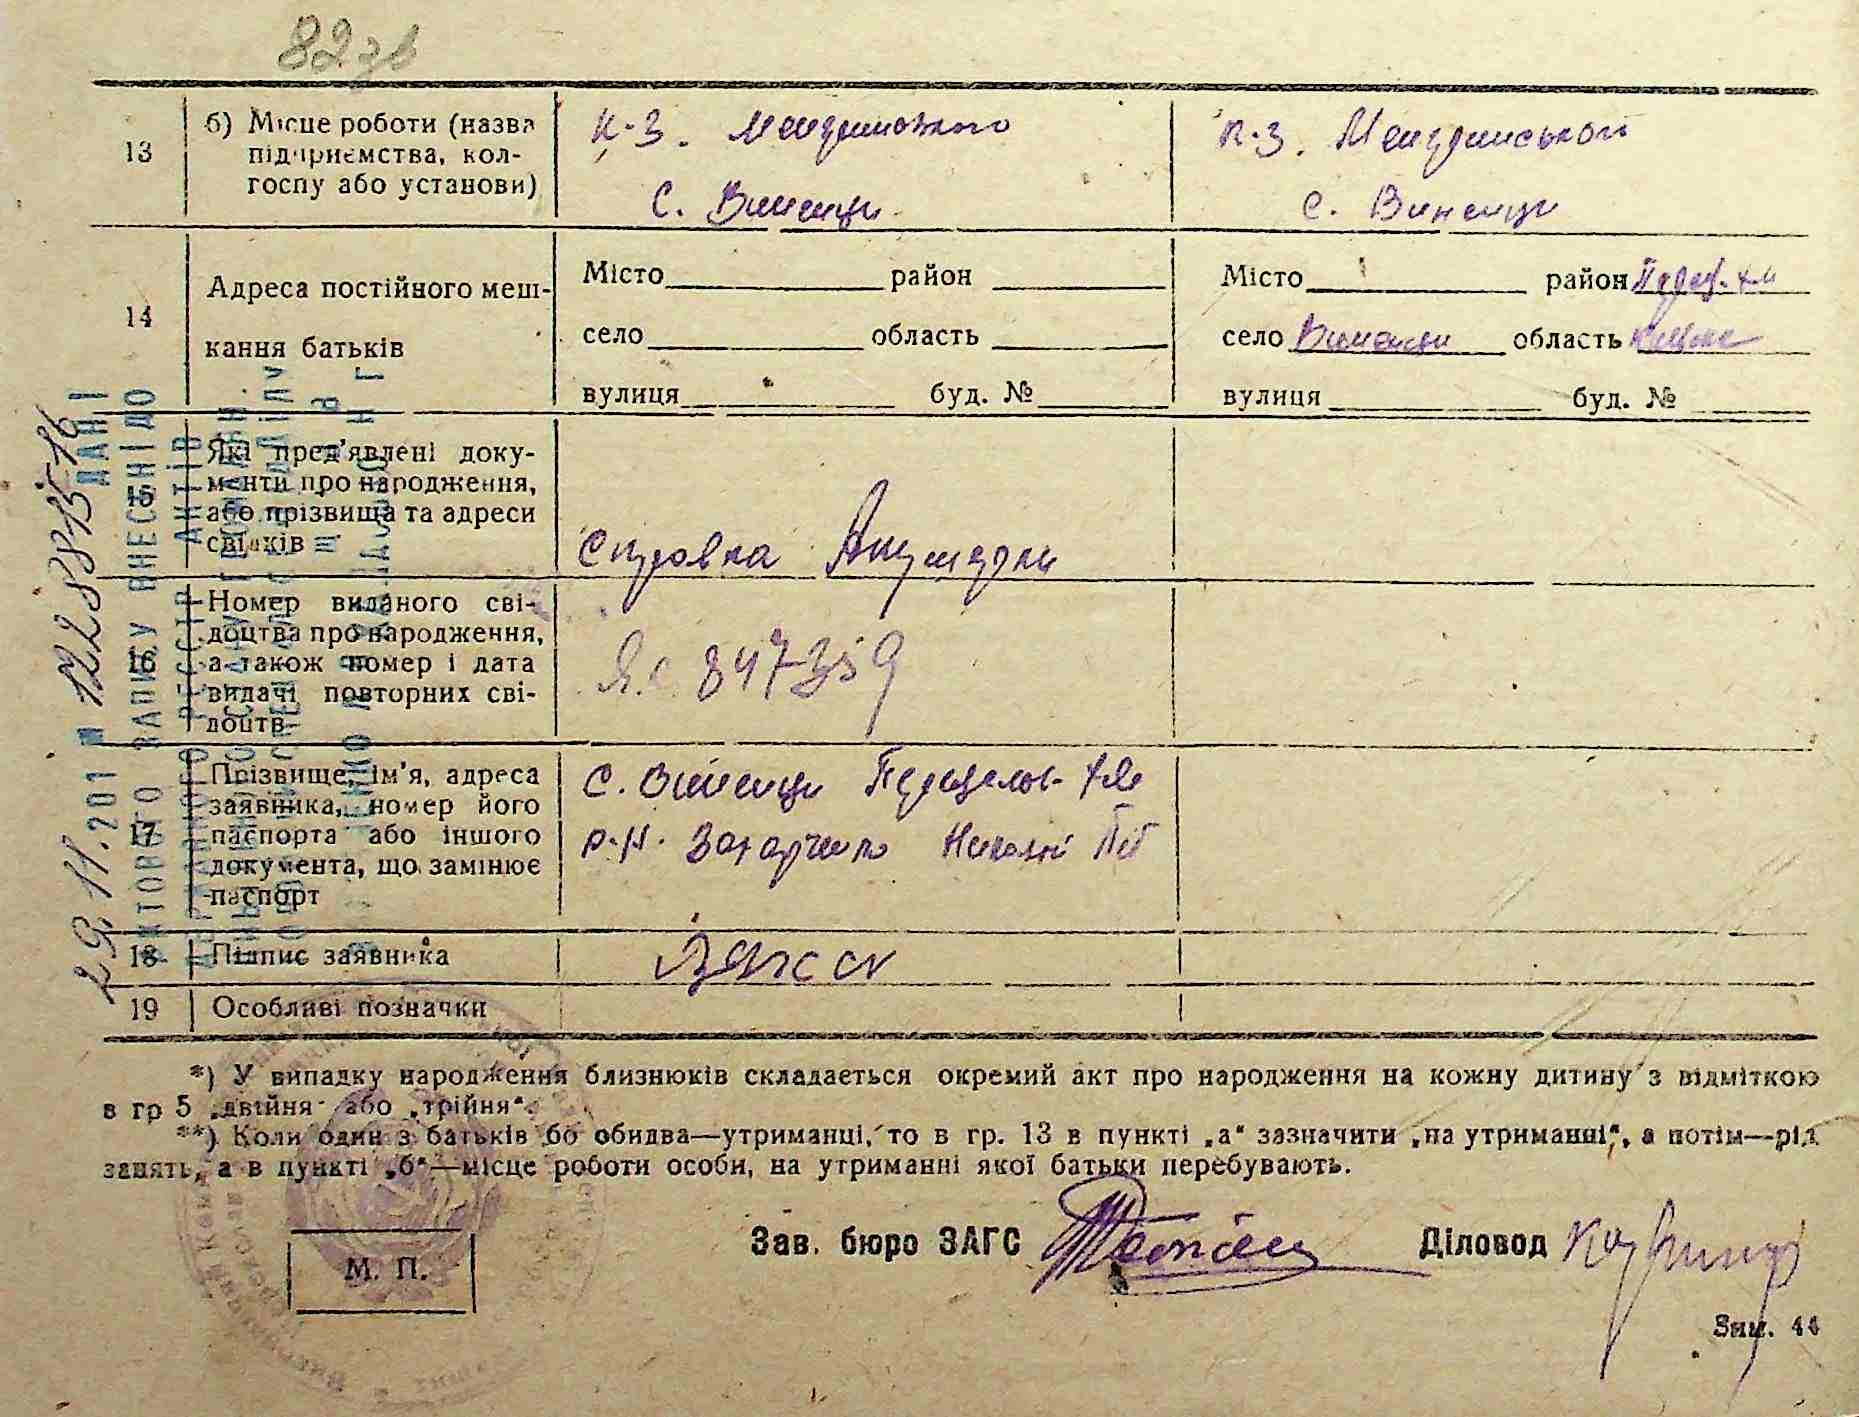 82 зв
13
б) Місце роботи (назва
підприємства, кол-
госпу або установи)
К-З.
с. Виненци
К-З.
с. Виненци
14
Адреса постійного меш-
кання батьків
Місто район
село область
вулиця буд. №
Місто район
село Виненци область
вулиця буд. №
15
Які пред'явлені доку-
менти про народження,
або прізвища та адреси
свідків
Справка Акушерки
16
Номер виданого сві-
доцтва про народження,
а також номер і дата
видачі повторних сві-
доцтв
Я.С 847359
17
Прізвище, ім'я, адреса
заявника, номер його
паспорта або іншого
документа, що замінює
паспорт
С. Виненци
р-н. Захарченко
18
Підпис заявника
19
Особливі позначки
29.11.201 № 12288155-16
ДАНІ
ЗАПИСУ ВНЕСЕНІ ДО
АКТІВ
*) У випадку народження близнюків складається окремий акт про народження на кожну дитину з відміткою
в гр 5 „двійня" або „трійня".
**) Коли один з батьків бо обидва—утриманці, то в гр. 13 в пункті „а" зазначити „на утриманні", а потім—рід
занять, а в пункті „б"—місце роботи особи, на утриманні якої батьки перебувають.
М. П.
Зав. бюро ЗАГС
Діловод
Зам. 44